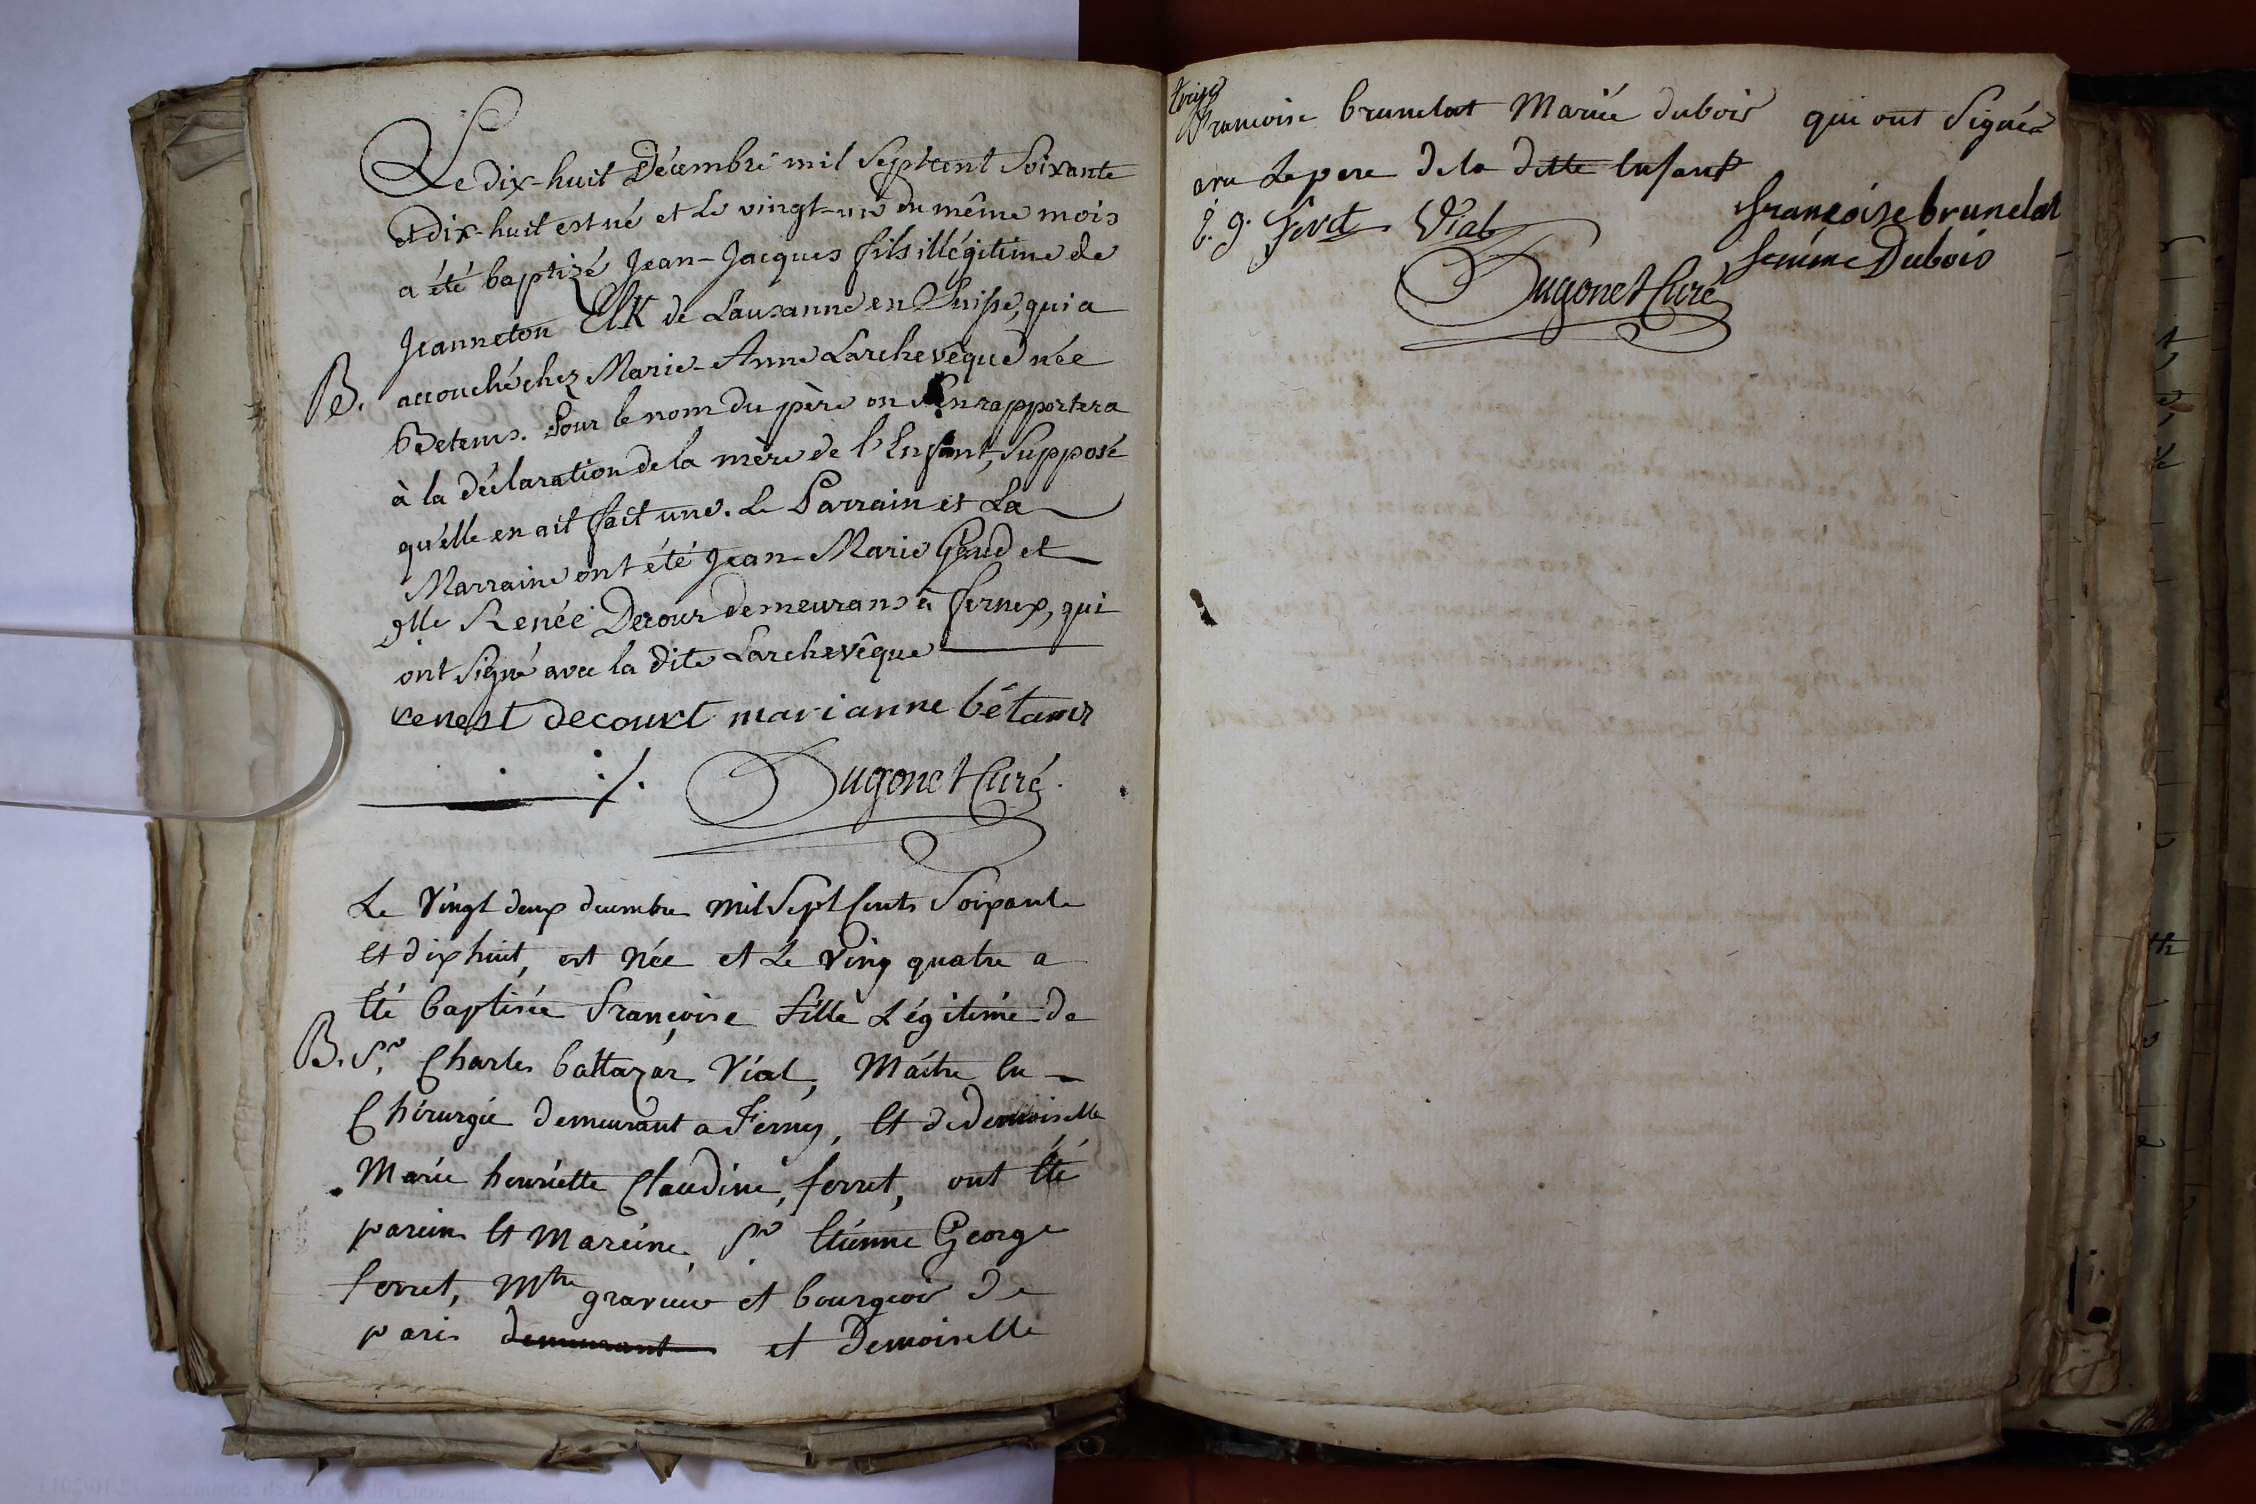 Le dix-huit Décembre mil Septcent Soixante
et dix-huit est né et le vingt-un du même mois
a été baptizé Jean-Jacques fils illégitime de
Jeanneton Elk de Lausanne en Suisse, qui a
B. accouché chez Marie-Anne Larchevêque née
Betems. Pour le nom du père on s'en rapportera
à la déclaration de la mère de l'Enfant, Supposé
qu'elle en ait fait une. Le Parrain et La
Marraine ont été Jean-Marie Gaud et
dlle Renée Decour demeurans à fernex, qui
ont Signé avec la dite Larchevêque
decourt marianne bétams
Dugonet Curé.
Le Vingt deux decembre mil Sept Cents Soixante
et dix huit, est Née et Le Ving quatre a
été baptisée Françoise fille Légitime de
B. Sr. Charles baltazar Vial, Maitre en
Chirurgie demeurant a Ferney, et de demoiselle
Marie henriette Claudine, ferret, ont été
parein et Mareine. Sr Etienne George
ferret, Mtre graveur et bourgeois de
paris demeurant et Demoiselle
Francoise brunelat Mariée dubois qui ont Signée
avec Le pere de la ditte enfant
E. g. Feret Vial françoise brunelat
femme Dubois
Dugonet Curé